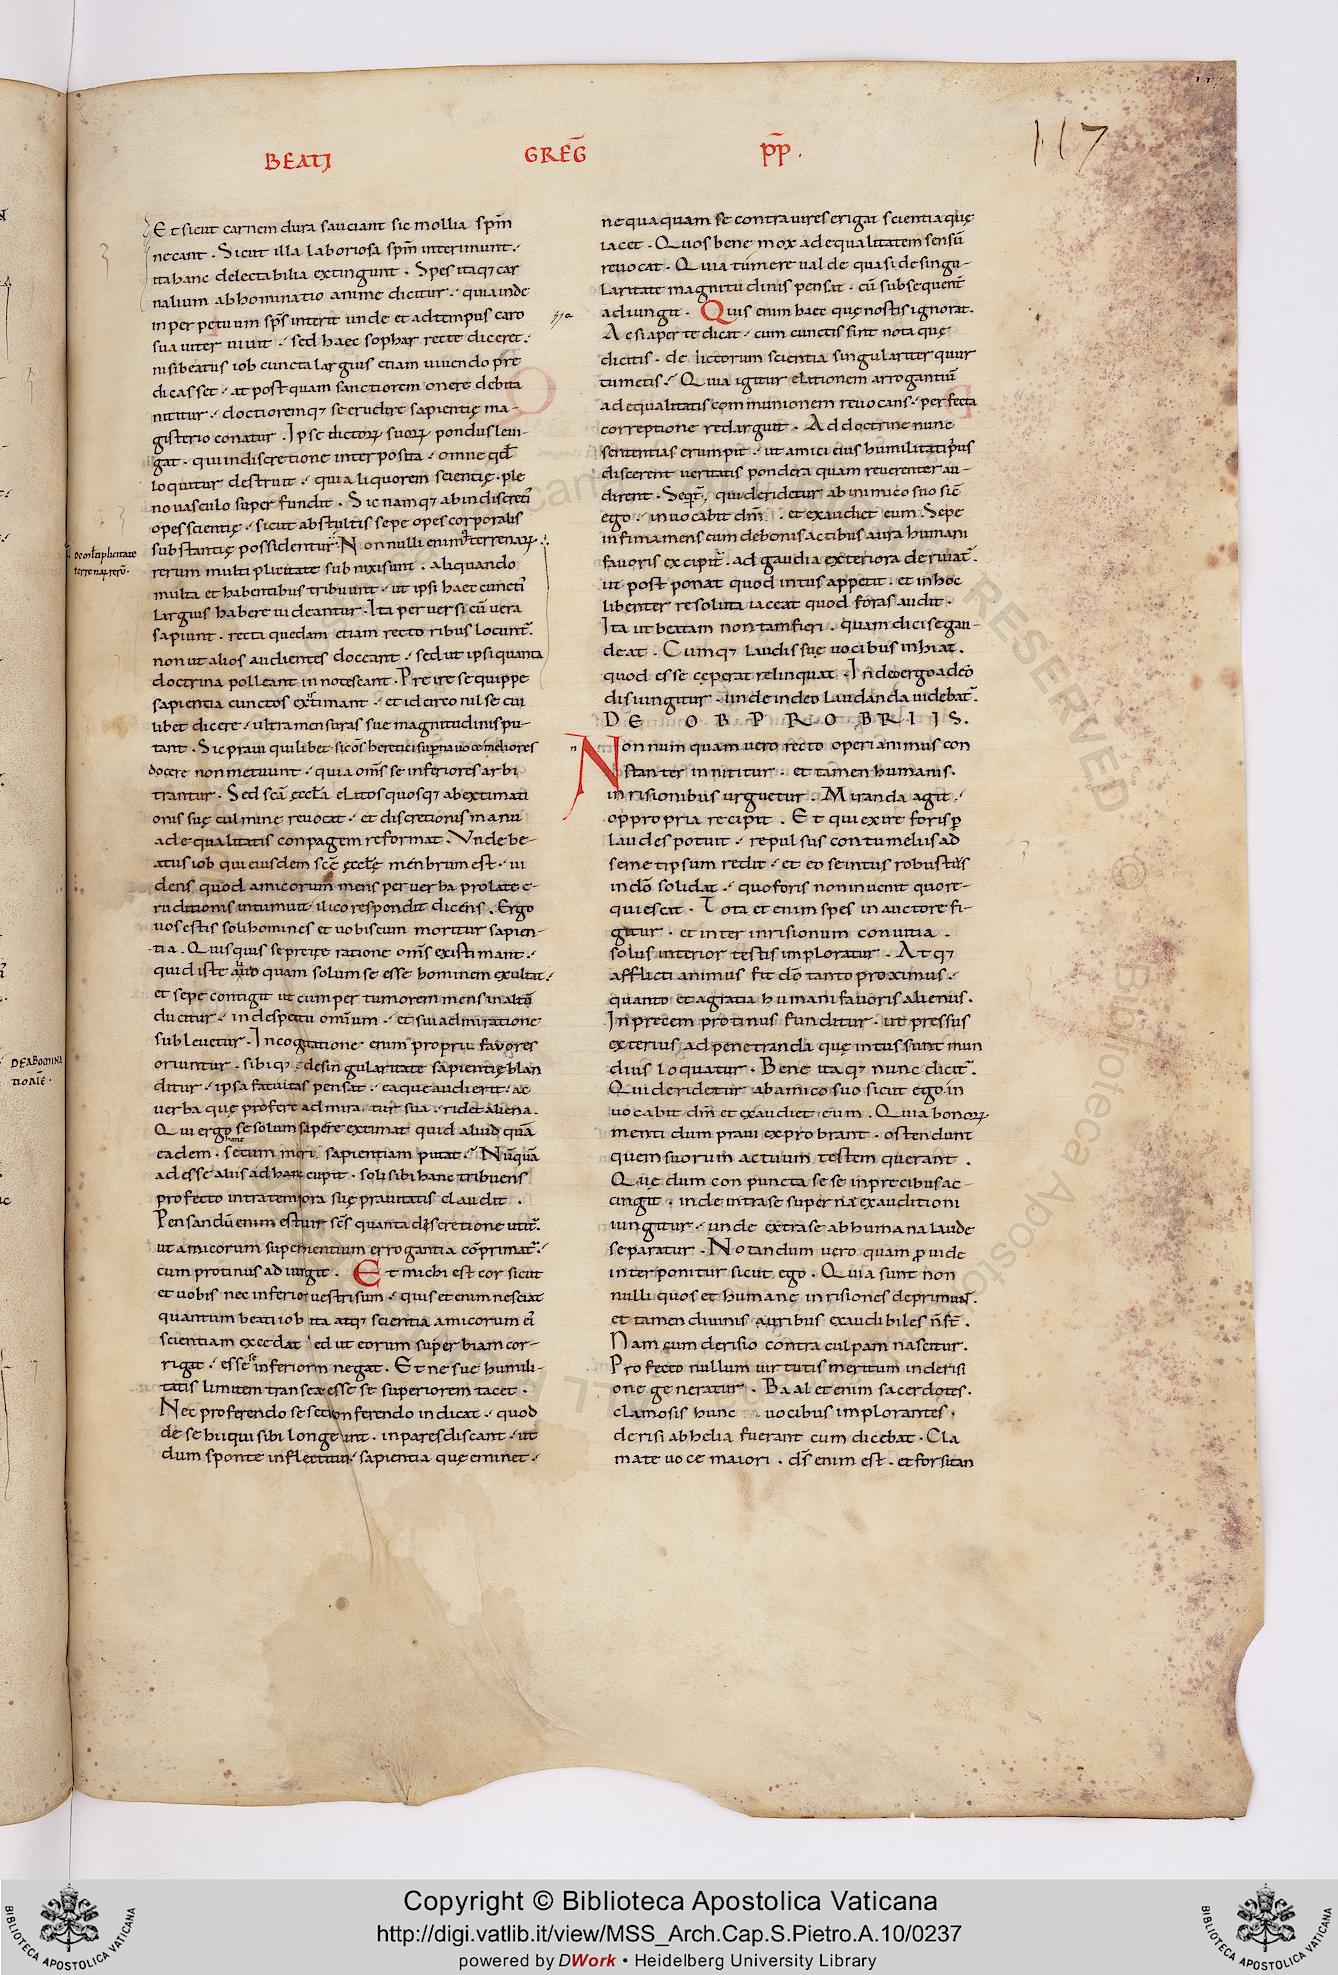 117
BEATI GREḠ PP̄.
Et sicut carnem dura sauciant sic mollia sp̄m
necant. Sicut illa laboriosa sp̄m interimunt.
ita hanc delectabilia extingunt. Spes itaq; car
nalium abhominatio anime dicitur. quia inde
in perpetuum sp̄s interit unde et ad tempus caro
suauiter uiuit. sed haec sophar recte diceret.
nisi beatus iob cuncta largius etiam uiuendo pre
dicasset. at postquam sanctiorem onere debita
nititur. doctioremq; se erudire sapientię ma-
gisterio conatur. Ipse dictoꝝ suoꝝ pondus leui-
gat. qui indiscretione interposita. omne qd̄
loquitur destruit. quia liquorem scientię ple
no uasculo superfundit. Sic namq; ab indiscretis
opes scientię. sicut ab stultis sepe opes corporalis
substantię possidentur. Nonnulli enim terrenaꝝ
rerum multiplicitate subnixi sunt. aliquando
multa et habentibus tribuunt. ut ipsi haec cunctis
largius habere uideantur. Ita peruersi cū uera
sapiunt. recta quedam etiam rectoribus locunt̄.
non ut alios audientes doceant. sed ut ipsi quanta
doctrina polleant innotescant. Preire se quippe
sapientia cunctos extimant. et idcirco nil se cui
libet dicere. ultra mensuras sue magnitudinis pu-
tant. Sic praui quilibet sic om̄s heretici superna uoce meliores
docere non metuunt. quia om̄s se inferiores arbi
trantur. Sed scā ęccl̄a elatos quosq; ab extimati
onis suę culmine reuocat. et discretionis manu
ad equalitatis conpagem reformat. Vnde be-
atus iob qui eiusdem scē ęccl̄ę menbrum est. ui
dens quod amicorum mens per uerba prolate e-
ruditionis intumuit. ilico respondit dicens. Ergo
uos estis soli homines et uobiscum moritur sapien-
tia. Quisquis se preire ratione om̄s existimant.
quid iste aliud quam solum se esse hominem exultat.
et sepe contigit ut cum per tumorem mens in altū
ducitur. in despectu omīum. et sui admiratione
subleuetur. In cogitatione enim proprii fauores
oriuntur. sibiq; de singularitate sapientię blan
ditur. ipsa fatuitas pensat. eaque audierit. ac
uerba quę profert admiratur sua. ridet aliena.
Qui ergo se solum sapere extimat quid aliud quā
eadem. secum mori sapientiam putat. Nūquā
adesse aliis ad hanc cupit. soli sibi hanc tribuens
profecto intra temjora suę prauitatis claudit.
Pensandū enim est uir sc̄s quanta discretione utit̄.
ut amicorum superuientium errogantia cōprimat̄.
cum protinus adiungit. Et michi est cor sicut
et uobis nec inferior uestri sum. quis et enim nesciat
quantum beati iob uita atq; scientia amicorum eī
scientiam excedat sed ut eorum superbiam cor-
rigat. esse se inferiorem negat. Et ne sue humili-
tatis limitem transeat esse se superiorem tacet.
Nec proferendo se set conferendo indicat. quod
de se hii qui sibi longe int. inpares discant. ut
dum sponte inflectitur sapientia quę eminet.
DE multiplicitate
terrenaꝝ rerū.
DE ABOMINA
TIONĒ.
nequaquam se contra uires erigat scientia quę
iacet. Quos bene mox ad equalitatem sensū
reuocat. Quia tumere ualde quasi de singu-
laritate magnitudinis pensat. cū subsequent̄
adiungit. Quis enim haec quę nostis ignorat.
Ac si aperte dicat. cum cunctis sint nota quę
dicitis. de lictorum scientia singulariter quur
tumetis. Quia igitur elationem arrogantiū
ad equalitatis communionem reuocans. perfecta
correptione redarguit. Ad doctrine nunc
sententias erumpit. ut amici eius humilitati p̄us
discerent ueritatis pondera quam reuerenter au-
dirent. Seqt̄. qui deridetur ab inimico suo sic̄
ego. inuocabit dm̄. et exaudiet eum. Sepe
infirma mens cum de bonis actibus aura humani
fauoris excipit̄. ad gaudia exteriora deriuat̄.
ut postponat quod intus appetit. et in hoc
libenter resoluta iaceat quod foras audit.
Ita ut beatam non tam fieri. quam dici se gau-
deat. Cumq; laudis suę uocibus inhiat.
quod esse cęperat relinquat. Inde ergo a dēo
disiungitur. unde in deo laudanda uidebat̄.
DE OBPROBRIIS.
Nonnumquam uero recto operi animus con
stanter innititur. et tamen humanis
inrisionibus urguetur. Miranda agit.
oppropria recipit. Et qui exire foris ꝑ
laudes potuit. repulsus contumeliis ad
semetipsum redit. et eo se intus robustiis
in dō solidat. quo foris non inuenit quo re-
quiescat. Tota et enim spes in auctore fi-
gitur. et inter inrisionum conuitia.
solus interior testis imploratur. Atq;
afflicti animus fit dō tanto proximus.
quanto et a gratia humani fauoris alienus.
In precem protinus funditur. ut pressus
exterius ad penetranda quę intus sunt mun
dius loquatur. Bene itaq; nunc dicit̄.
Qui deridetur ab amico suo sicut ego in
uocabit dm̄ et exaudiet eum. Quia bonoꝝ
menti dum praui exprobrant. ostendunt
quem suorum actuum testem querant.
Quę dum conpuncta sese in precibus ac-
cingit. inde intra se supernā exauditioni
iungitur. unde extra se ab humana laude
separatur. Notandum uero quam ꝓuide
interponitur sicut ego. Quia sunt non
nulli quos et humanę inrisiones deprimunt.
et tamen diuinis auribus exaudibiles n̄ st̄.
Nam cum derisio contra culpam nascitur.
Profecto nullum uirtutis meritum in derisi
one generatur. Baal et enim sacerdotes.
clamosis hunc uocibus implorantes.
derisi ab helia fuerant cum dicebat. Cla
mate uoce maiori. ds̄ enim est. et forsitan
Copyright © Biblioteca Apostolica Vaticana
http://digi.vatlib.it/view/MSS_Arch.Cap.S.Pietro.A.10/0237
powered by DWork • Heidelberg University Library
BIBLIOTECA APOSTOLICA VATICANA
BIBLIOTECA APOSTOLICA VATICANA